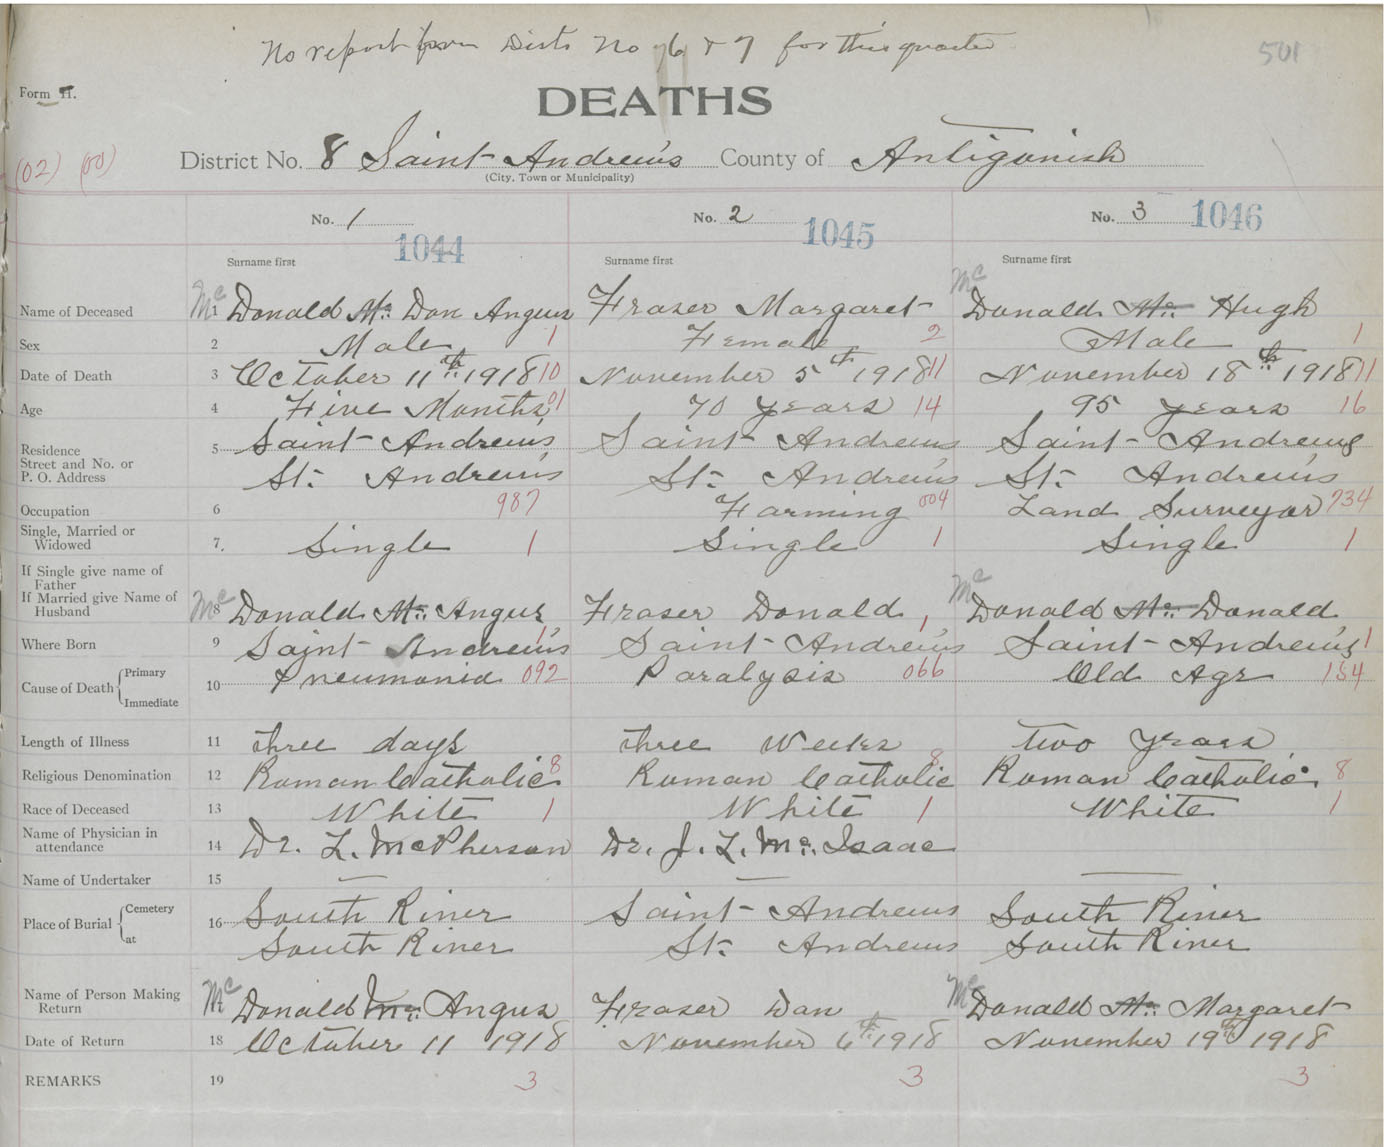 No report from Dists No 6 & 7 for this quarter
501
Form 11.
DEATHS
(02) (00)
District No. 8 Saint Andrew's County of Antigonish
(City, Town or Municipality)
No. 1 No. 2 No. 3
1044 1045 1046
Surname first Surname first Surname first
Name of Deceased 1 Mc Donald Mc Dan Angus Fraser Margaret Mc Donald Mc Hugh
Sex 2 Male 1 Female 2 Male 1
Date of Death 3 October 11th 1918 10 November 5th 1918 11 November 18th 1918 11
Age 4 Five Months 01 70 years 14 95 years 16
Residence 5 Saint Andrew's Saint Andrew's Saint Andrew's
Street and No. or
P. O. Address St. Andrew's St. Andrew's St. Andrew's
Occupation 6 987 Farming 004 Land Surveyor 734
Single, Married or
Widowed 7. Single 1 Single 1 Single 1
If Single give name of
Father
If Married give Name of
Husband 8 Mc Donald Mc Angus Fraser Donald Mc Donald Mc Donald
Where Born 9 Saint Andrew's 1 Saint Andrew's 1 Saint Andrew's 1
Cause of Death Primary Immediate 10 Pneumonia 092 Paralysis 066 Old Age 154
Length of Illness 11 three days three Weeks two years
Religious Denomination 12 Roman Catholic 8 Roman Catholic 8 Roman Catholic 8
Race of Deceased 13 White 1 White 1 White 1
Name of Physician in
attendance 14 Dr. L. McPherson Dr. J. L. Mc. Isaac
Name of Undertaker 15 — — —
Place of Burial Cemetery 16 South River Saint Andrews South River
at South River St. Andrews South River
Name of Person Making
Return 17 Mc Donald Mc Angus Fraser Dan Mc Donald Mc Margaret
Date of Return 18 October 11 1918 November 6th 1918 November 19th 1918
REMARKS 19 3 3 3